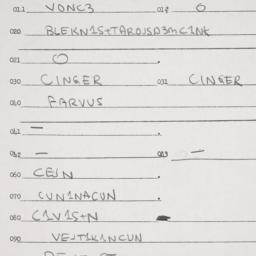 011 VONC3 019 O
020 BLEKN1S+TAROJSD3MC1NK
021 O
030 CINGER 031 CINGER
040 FARVUS
041 —
042 — 043 —
060 CEJN
070 CUN1NACUN
080 C1V1S+N
090 VEJT1K1NCUN